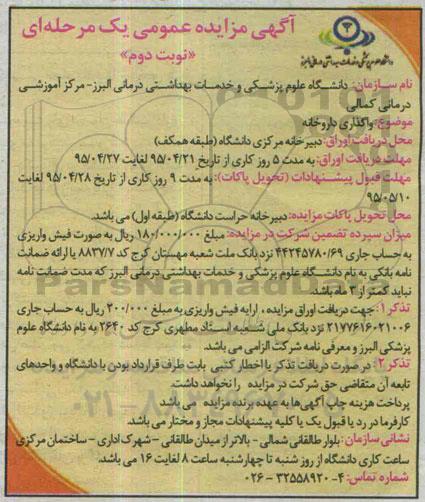 آگهی مزایده عمومی یک مرحله‌ای
«نوبت دوم»
نام سازمان: دانشگاه علوم پزشکی و خدمات بهداشتی درمانی البرز- مرکز آموزشی
درمانی کمالی
موضوع: واگذاری داروخانه
محل دریافت اوراق: دبیرخانه مرکزی دانشگاه (طبقه همکف)
مهلت دریافت اوراق: به مدت ۵ روز کاری از تاریخ ۹۵/۰۴/۲۱ لغایت ۹۵/۰۴/۲۷
مهلت قبول پیشنهادات (تحویل پاکات): به مدت ۹ روز کاری از تاریخ ۹۵/۰۴/۲۸ لغایت
۹۵/۰۵/۱۰
محل تحویل پاکات مزایده: دبیرخانه حراست دانشگاه (طبقه اول) می باشد.
میزان سپرده تضمین شرکت در مزایده: مبلغ ۱۸۰/۰۰۰/۰۰۰ ریال به صورت فیش واریزی
به حساب جاری ۴۴۲۴۵۷۸۰/۶۹ نزد بانک ملت شعبه مهستان کرج کد ۸۸۳۷/۷ یا ارائه ضمانت
نامه بانکی به نام دانشگاه علوم پزشکی و خدمات بهداشتی درمانی البرز که مدت ضمانت نامه
نباید کمتر از ۳ ماه باشد.
تذکر ۱: جهت دریافت اوراق مزایده ، ارایه فیش واریزی به مبلغ ۲۰۰/۰۰۰ ریال به حساب جاری
۲۱۷۷۶۱۶۰۲۱۰۰۶ نزد بانک ملی شعبه استاد مطهری کرج کد ۲۶۴۰ به نام دانشگاه علوم
پزشکی البرز و معرفی نامه شرکت الزامی می باشد.
تذکر ۲: در صورت دریافت تذکر یا اخطار کتبی بابت طرف قرارداد بودن با دانشگاه و واحدهای
تابعه آن متقاضی حق شرکت در مزایده را نخواهد داشت.
پرداخت هزینه چاپ آگهی‌ها به عهده برنده مزایده می باشد
کارفرما در رد یا قبول یک یا کلیه پیشنهادات مجاز و مختار می باشد.
نشانی سازمان: بلوار طالقانی شمالی - بالاتر از میدان طالقانی - شهرک اداری - ساختمان مرکزی
ساعت کاری دانشگاه از روز شنبه تا چهارشنبه ساعت ۸ لغایت ۱۶ می باشد.
شماره تماس: ۴- ۳۲۵۵۸۹۲۰ - ۰۲۶